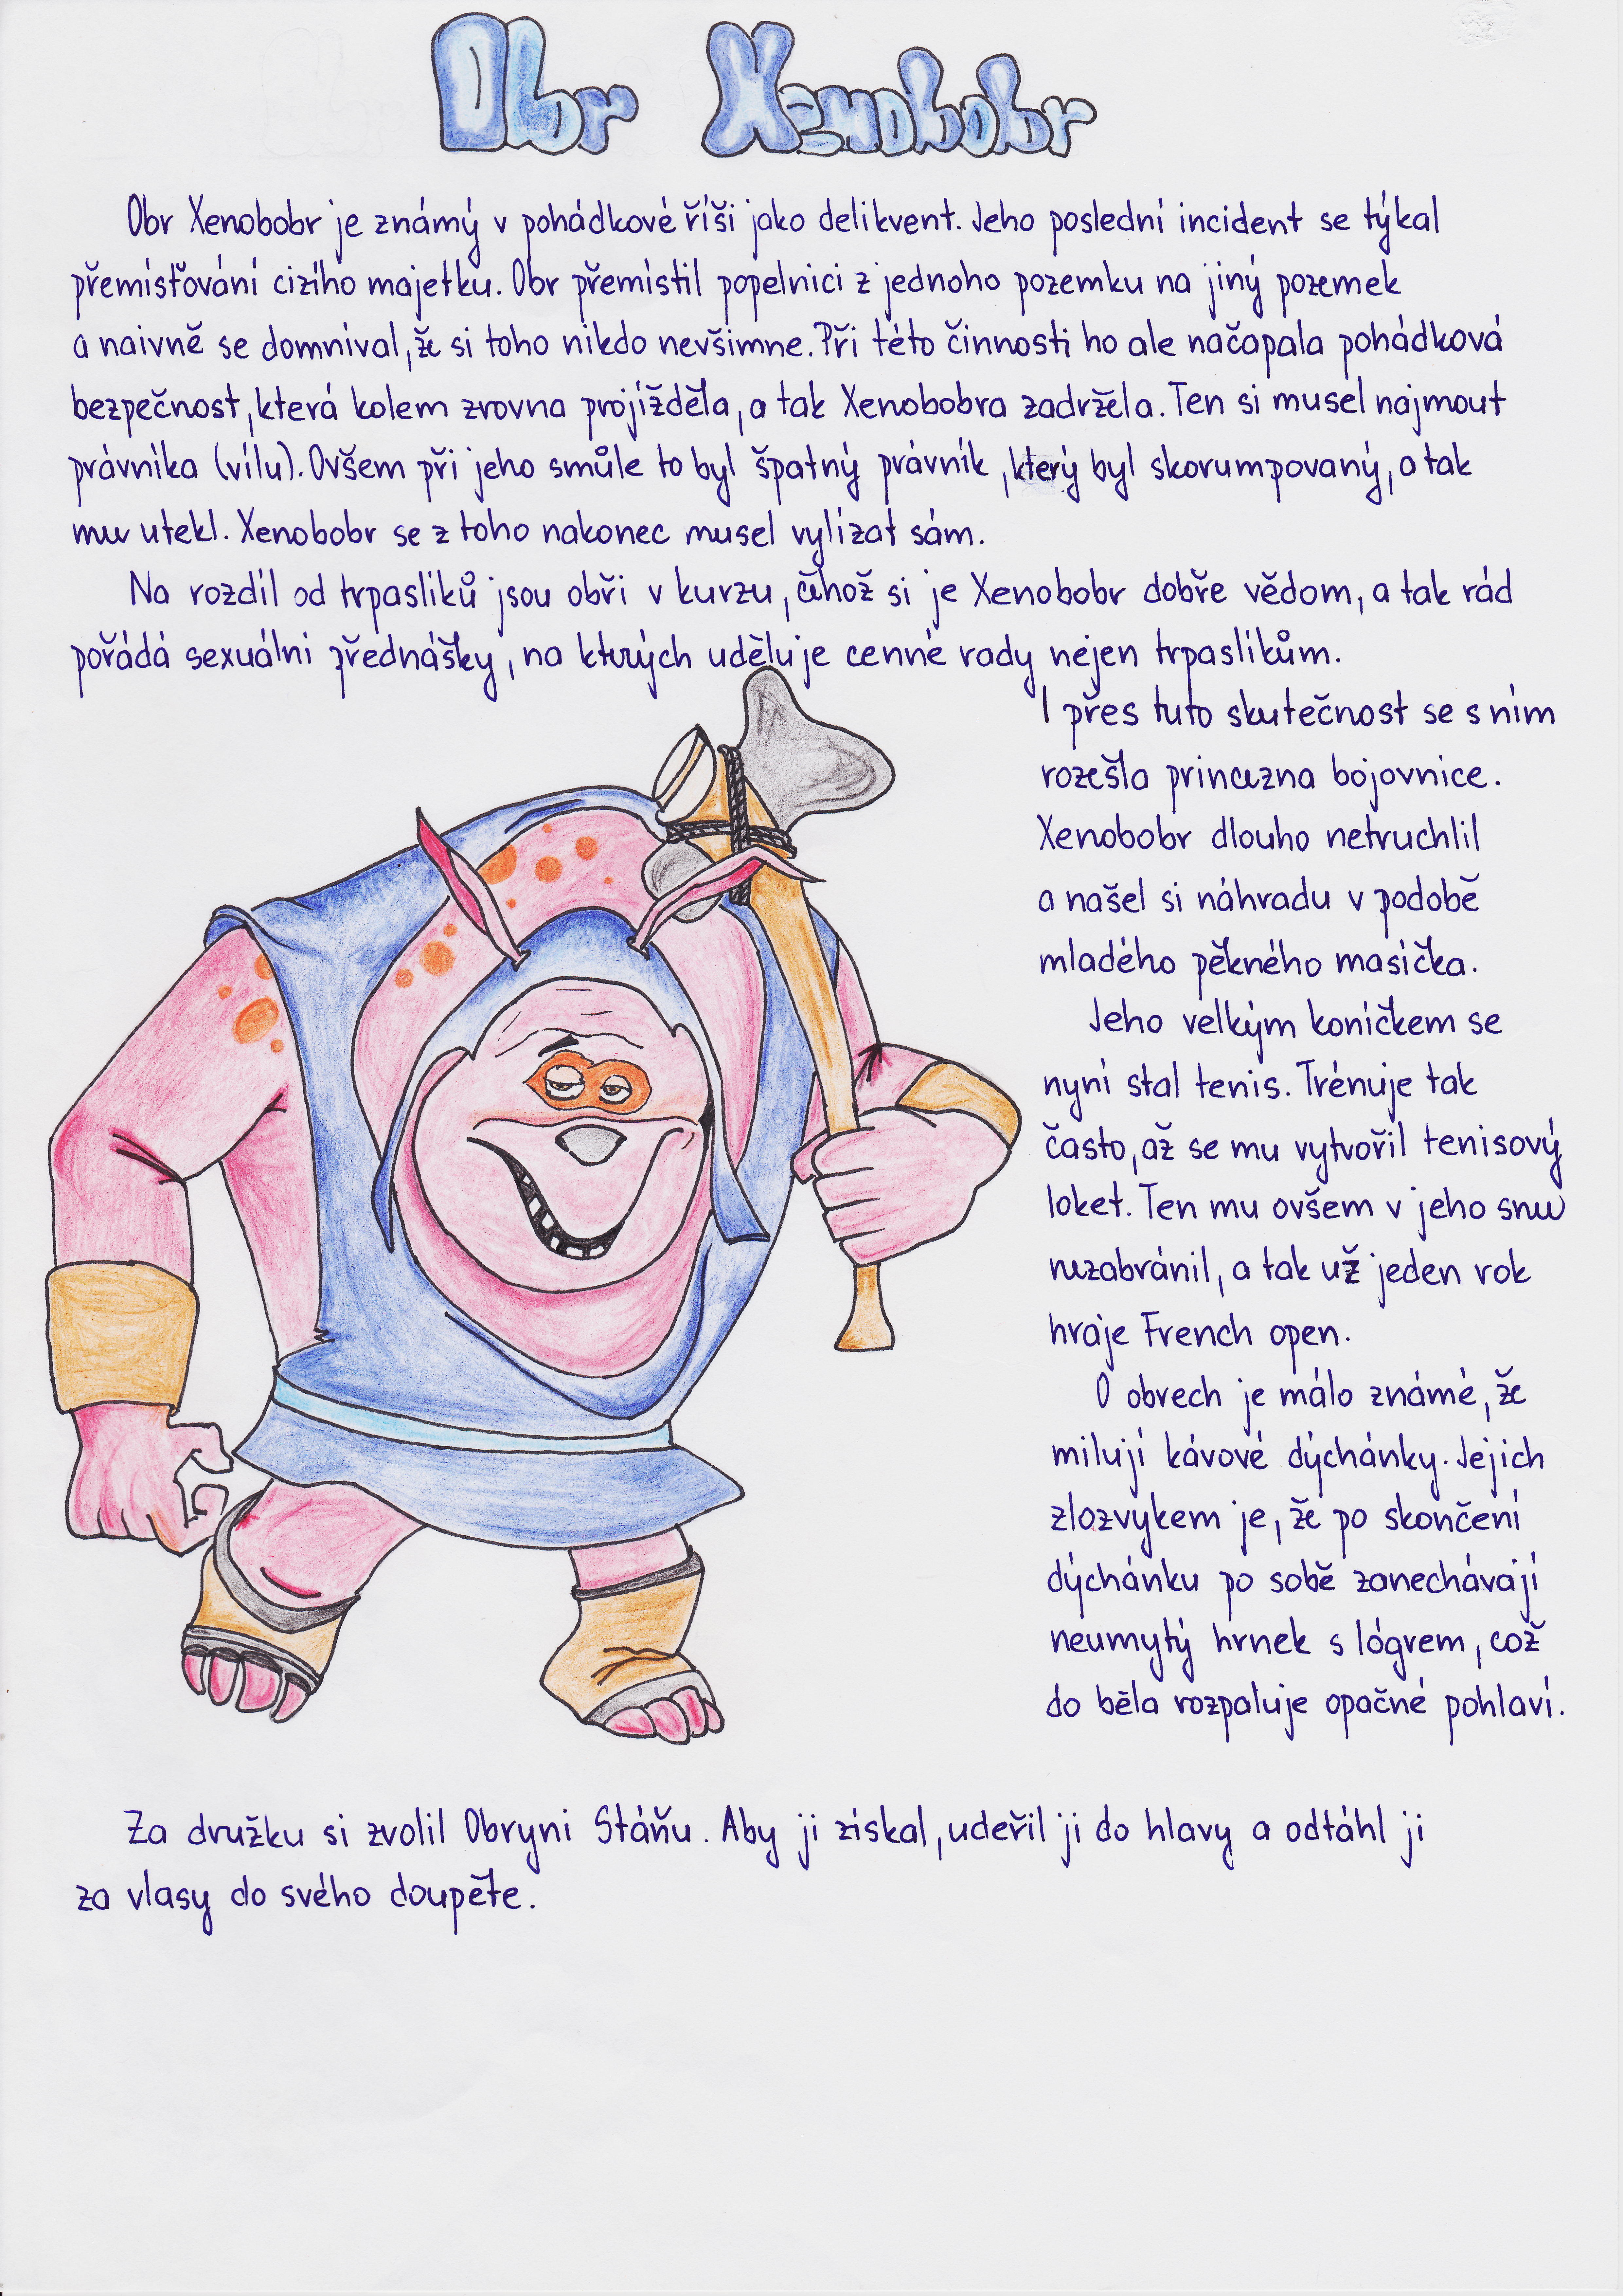 Obr Xenobobr
Obr Xenobobr je známý v pohádkové říši jako delikvent. Jeho poslední incident se týkal
přemisťování cizího majetku. Obr přemístil popelnici z jednoho pozemku na jiný pozemek
a naivně se domníval, že si toho nikdo nevšimne. Při této činnosti ho ale načapala pohádková
bezpečnost, která kolem zrovna projížděla, a tak Xenobobra zadržela. Ten si musel najmout
právníka (vílu). Ovšem při jeho smůle to byl špatný právník, který byl skorumpovaný, a tak
mu utekl. Xenobobr se z toho nakonec musel vylízat sám.
Na rozdíl od trpaslíků jsou obři v kurzu, čehož si je Xenobobr dobře vědom, a tak rád
pořádá sexuální přednášky, na kterých uděluje cenné rady nejen trpaslíkům.
I přes tuto skutečnost se s ním
rozešla princezna bojovnice.
Xenobobr dlouho netruchlil
a našel si náhradu v podobě
mladého pěkného masíčka.
Jeho velkým koníčkem se
nyní stal tenis. Trénuje tak
často, až se mu vytvořil tenisový
loket. Ten mu ovšem v jeho snu
nezabránil, a tak už jeden rok
hraje French open.
O obrech je málo známé, že
milují kávové dýchánky. Jejich
zlozvykem je, že po skončení
dýchánku po sobě zanechávají
neumytý hrnek s lógrem, což
do běla rozpaluje opačné pohlaví.
Za družku si zvolil Obryni Stáňu. Aby ji získal, udeřil ji do hlavy a odtáhl ji
za vlasy do svého doupěte.